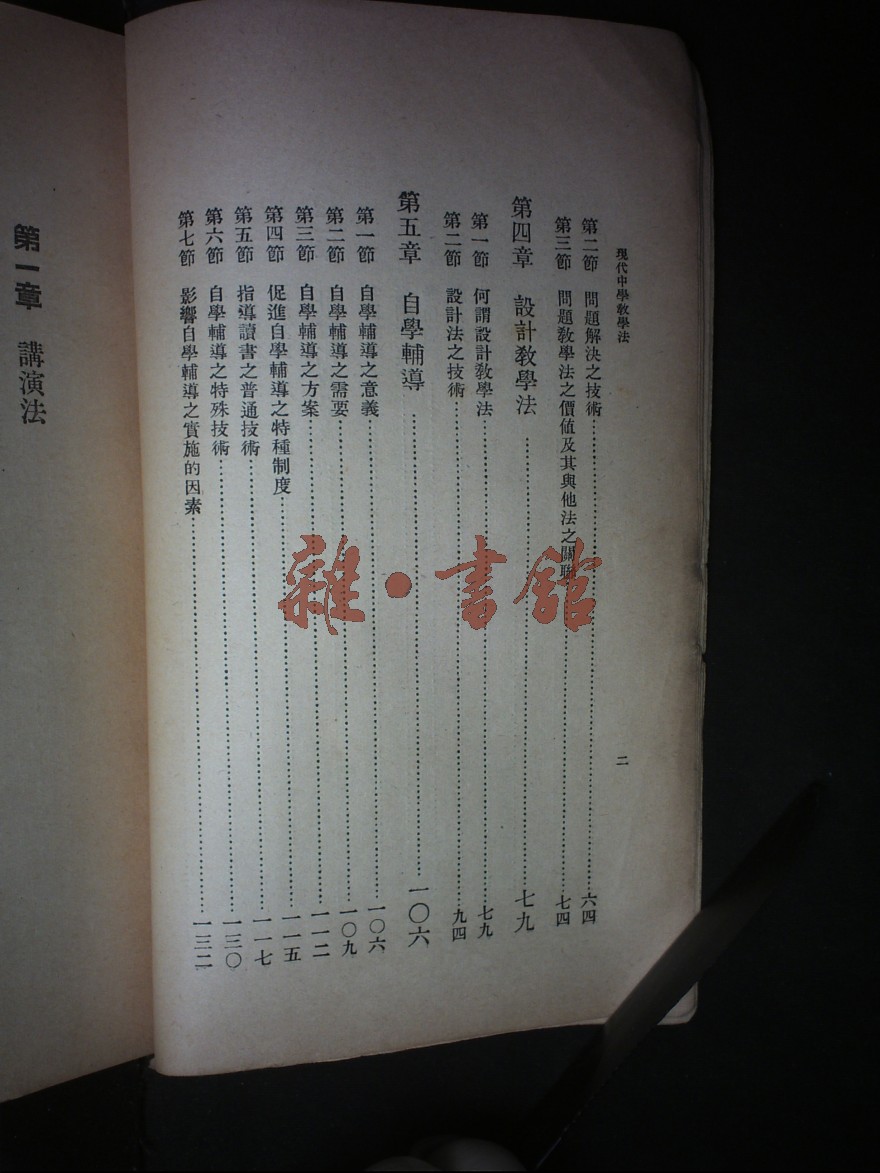 現代中學教學法
二
第二節 問題解決之技術……六四
第三節 問題教學法之價值及其與他法之關聯……七四
第四章 設計教學法……七九
第一節 何謂設計教學法……七九
第二節 設計法之技術……九四
第五章 自學輔導……一〇六
第一節 自學輔導之意義……一〇六
第二節 自學輔導之需要……一〇九
第三節 自學輔導之方案……一一二
第四節 促進自學輔導之特種制度……一一五
第五節 指導讀書之普通技術……一一七
第六節 自學輔導之特殊技術……一三〇
第七節 影響自學輔導之實施的因素……一三二
第一章 講演法
雜·書館